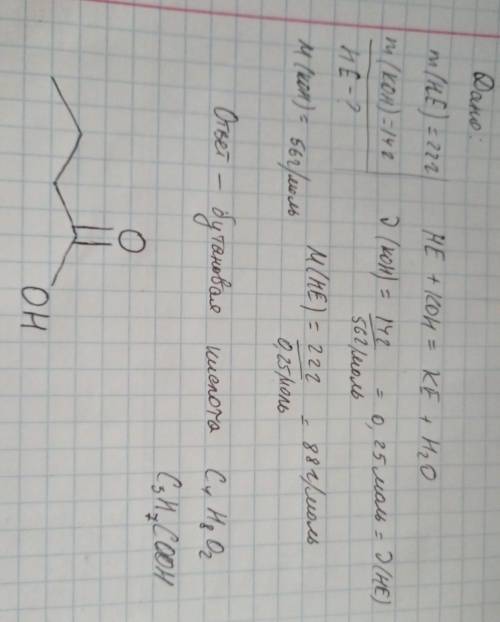 Дано:
m(HE) = 22г
m(KOH) = 14г
HE - ?
M(KOH) = 56г/моль
HE + KOH = KE + H2O
∂(KOH) = 14г / 56г/моль = 0,25 моль = ∂(HE)
M(HE) = 22г / 0,25 моль = 88г/моль
Ответ - бутановая кислота C4H8O2
C3H7COOH
O
OH